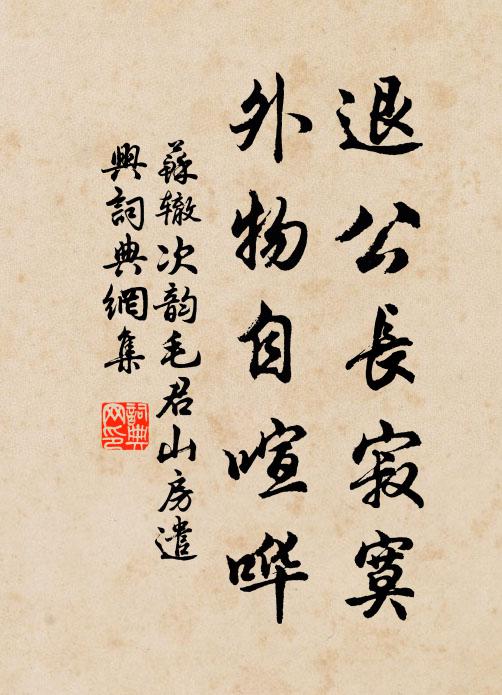 退公長寂寞
外物自喧哗
蘇辙次韵毛君山房遣
興詞典網集
詞典
网印